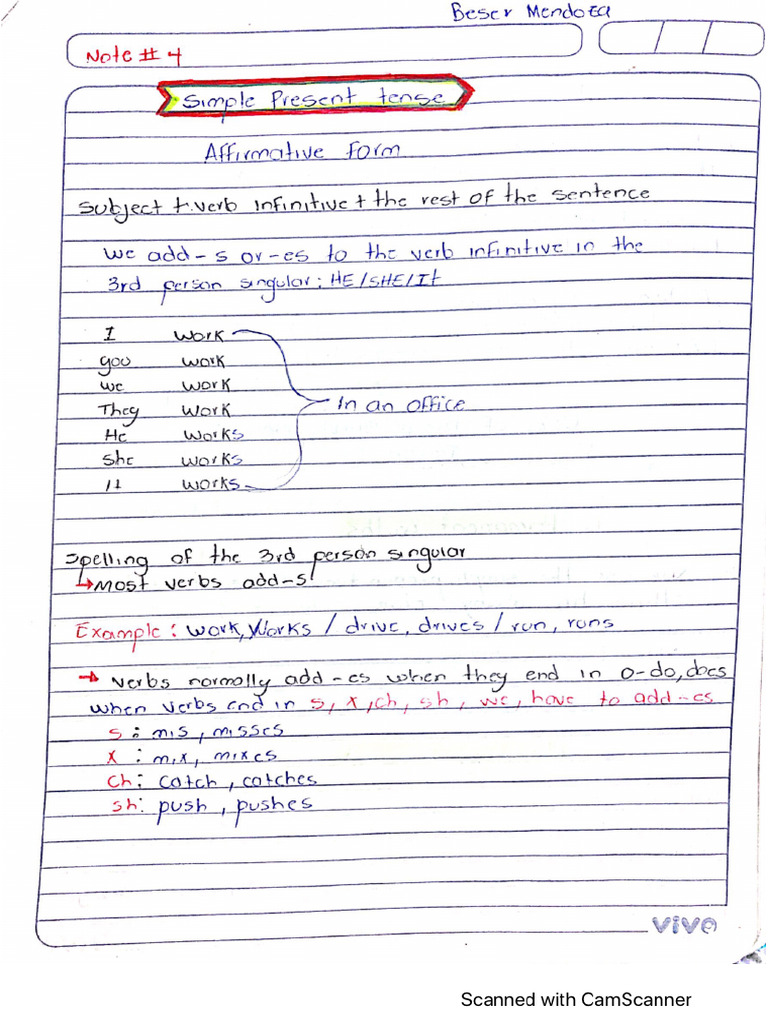 Beser Mendoza
Note # 4
Simple Present tense
Affirmative form
Subject + verb infinitive + the rest of the sentence
we add - s or -es to the verb infinitive in the
3rd person singular: HE/SHE/It
I work
you work
we work
They work
In an office
He works
She works
It works
Spelling of the 3rd person singular
→ Most verbs add -s
Example: work, Works / drive, drives / run, runs
→ verbs normally add -es when they end in o-do, does
when verbs end in s, x, ch, sh, we, have to add -es
s : mis, misses
x : mix, mixes
ch: catch, catches
sh: push, pushes
vivo
Scanned with CamScanner